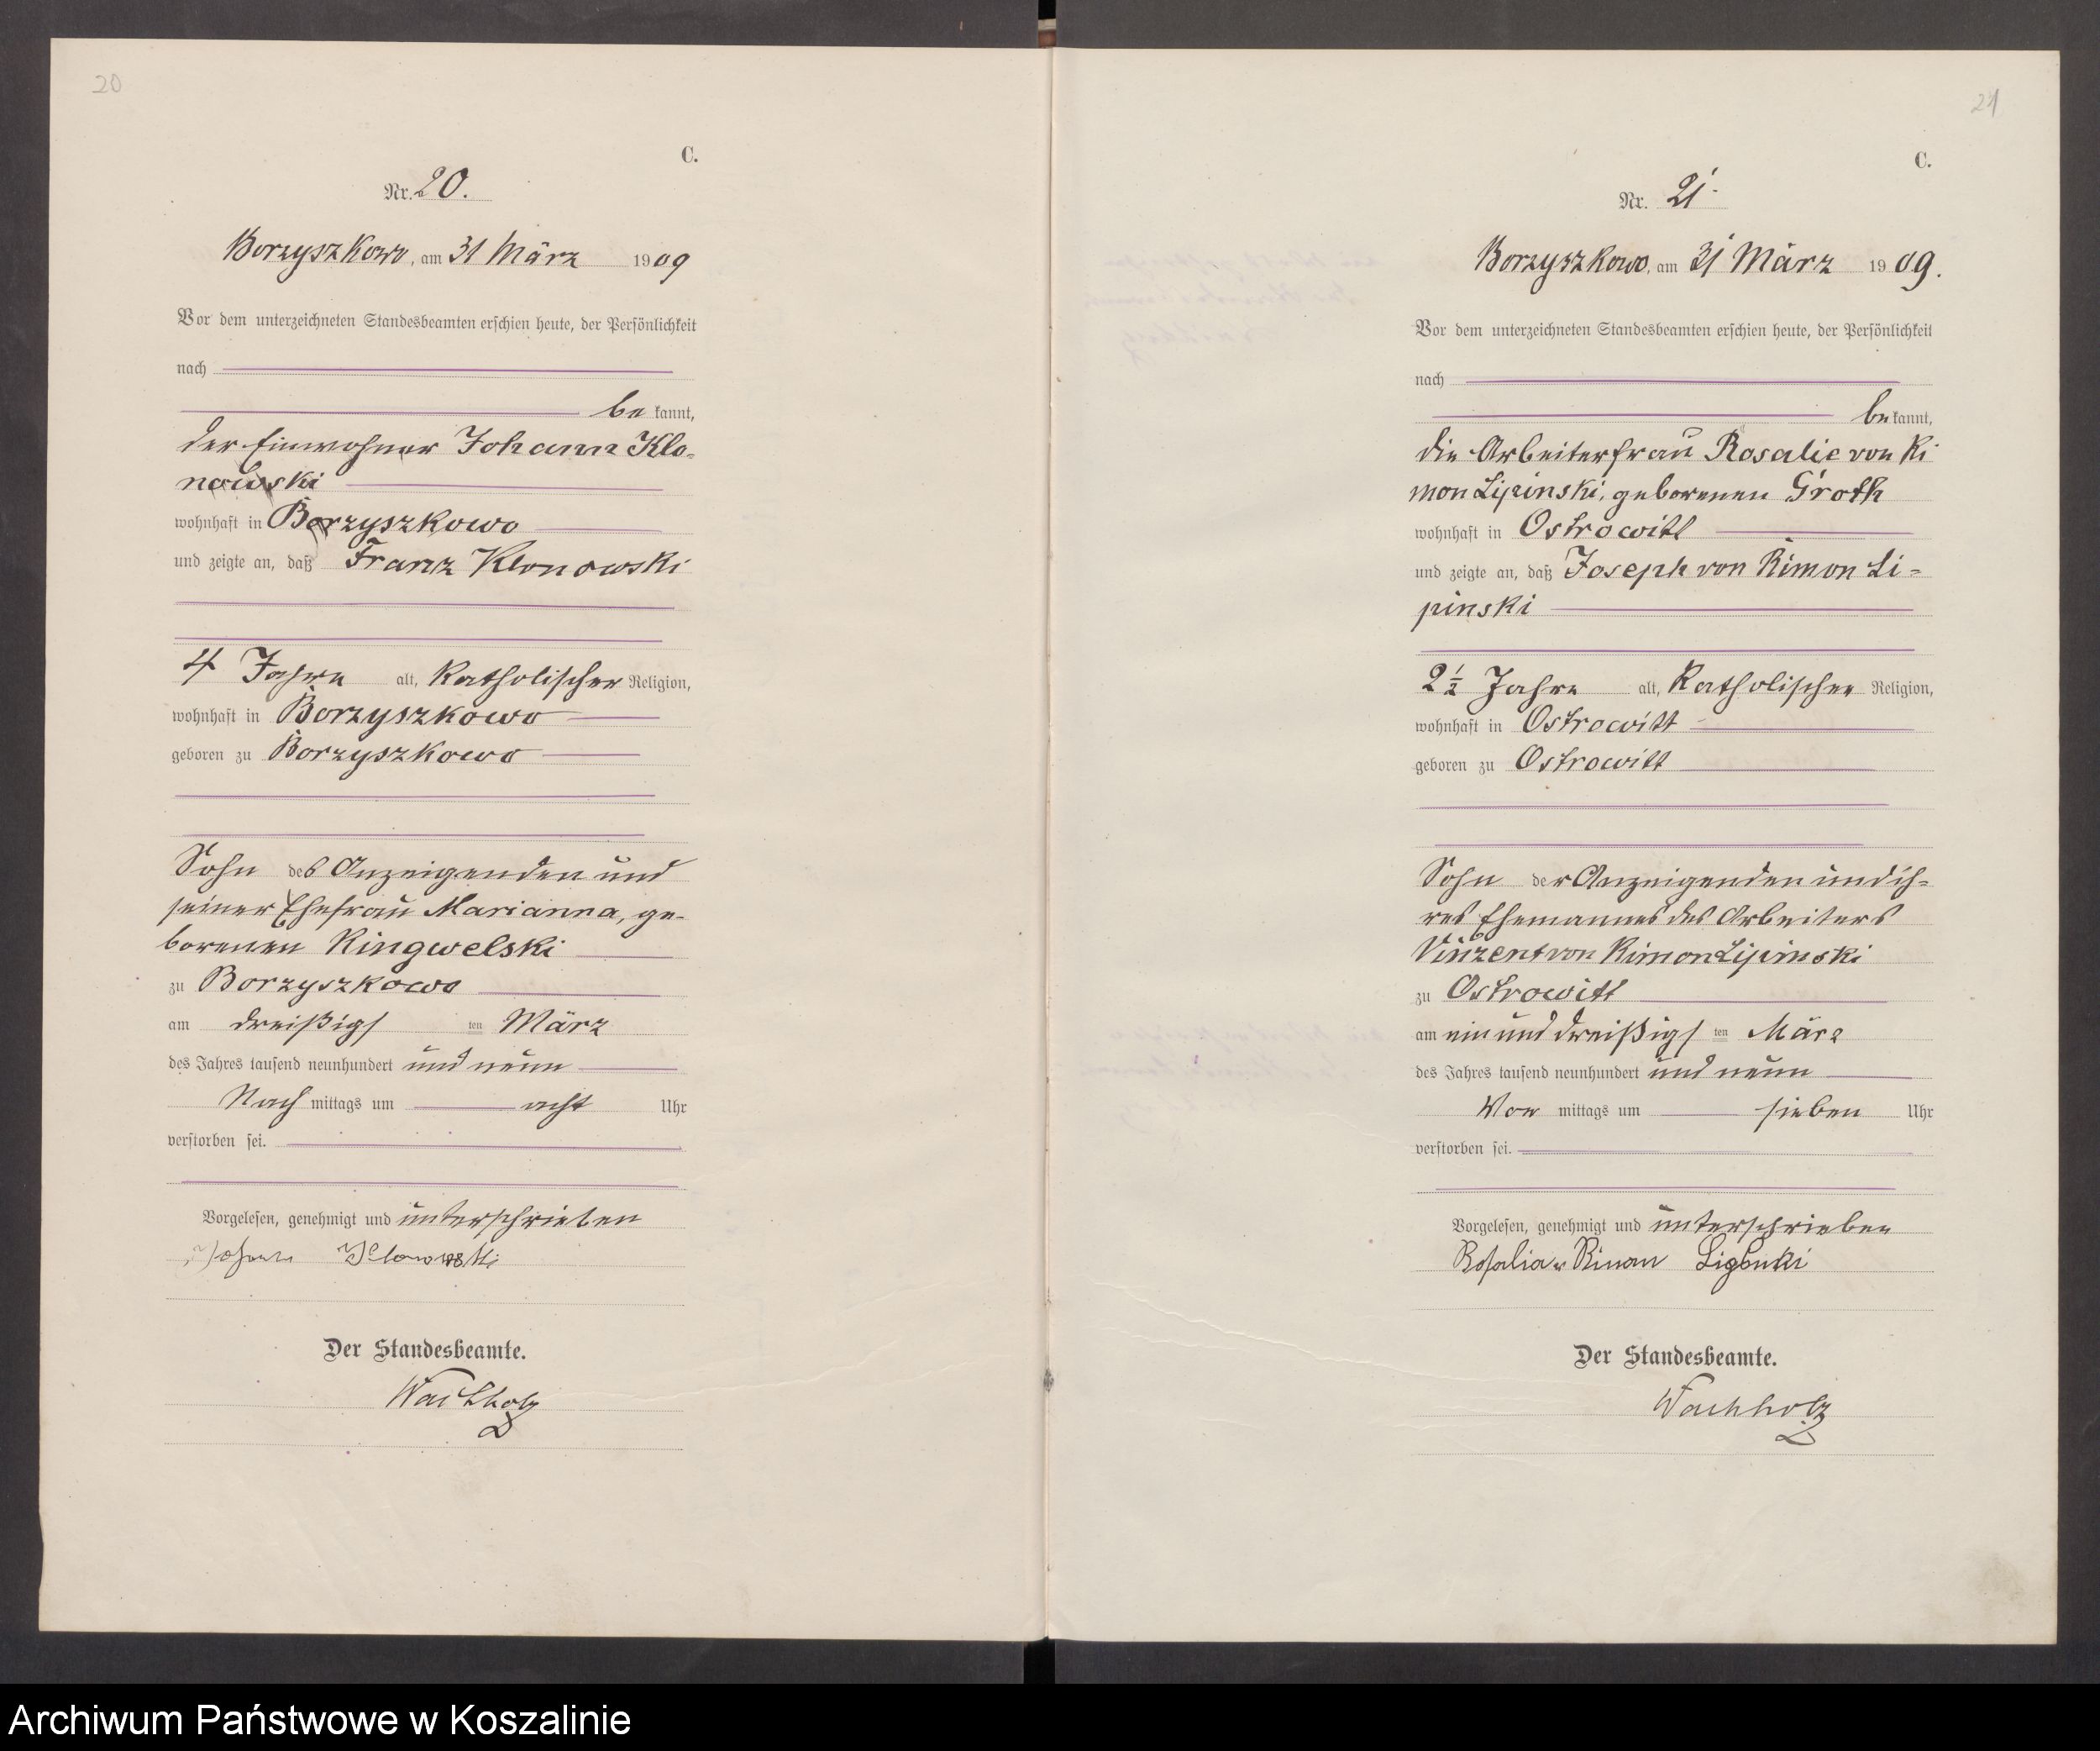 20
C.
Nr. 20.
Borzyszkowo, am 31 März 1909
Vor dem unterzeichneten Standesbeamten erschien heute, der Persönlichkeit
nach
be kannt,
der Einwohner Johann Klo-
nowski
wohnhaft in Borzyszkowo
und zeigte an, daß Franz Klonowski
4 Jahre alt, katholischer Religion,
wohnhaft in Borzyszkowo
geboren zu Borzyszkowo
Sohn des Anzeigenden und
seiner Ehefrau Marianna, ge-
borenen Ringwelski
zu Borzyszkowo
am dreißigs ten März
des Jahres tausend neunhundert und neun
Nach mittags um acht Uhr
verstorben sei.
Vorgelesen, genehmigt und unterschrieben
Johann
Der Standesbeamte.
Wachholz
21
C.
Nr. 21.
Borzyszkowo, am 31 März 1909.
Vor dem unterzeichneten Standesbeamten erschien heute, der Persönlichkeit
nach
be kannt,
die Arbeiterfrau Rosalie von Ri
mon Lipinski, geborenen Groth
wohnhaft in Ostrowitt
und zeigte an, daß Joseph von Rimon Li-
pinski
2½ Jahre alt, katholischer Religion,
wohnhaft in Ostrowitt
geboren zu Ostrowitt
Sohn der Anzeigenden und ih-
res Ehemannes des Arbeiters
Vinzent von Rimon Lipinski
zu Ostrowitt
am ein und dreißigs ten März
des Jahres tausend neunhundert und neun
Vor mittags um sieben Uhr
verstorben sei.
Vorgelesen, genehmigt und unterschrieben
Rosalia v Rimon
Der Standesbeamte.
Wachholz
Archiwum Państwowe w Koszalinie